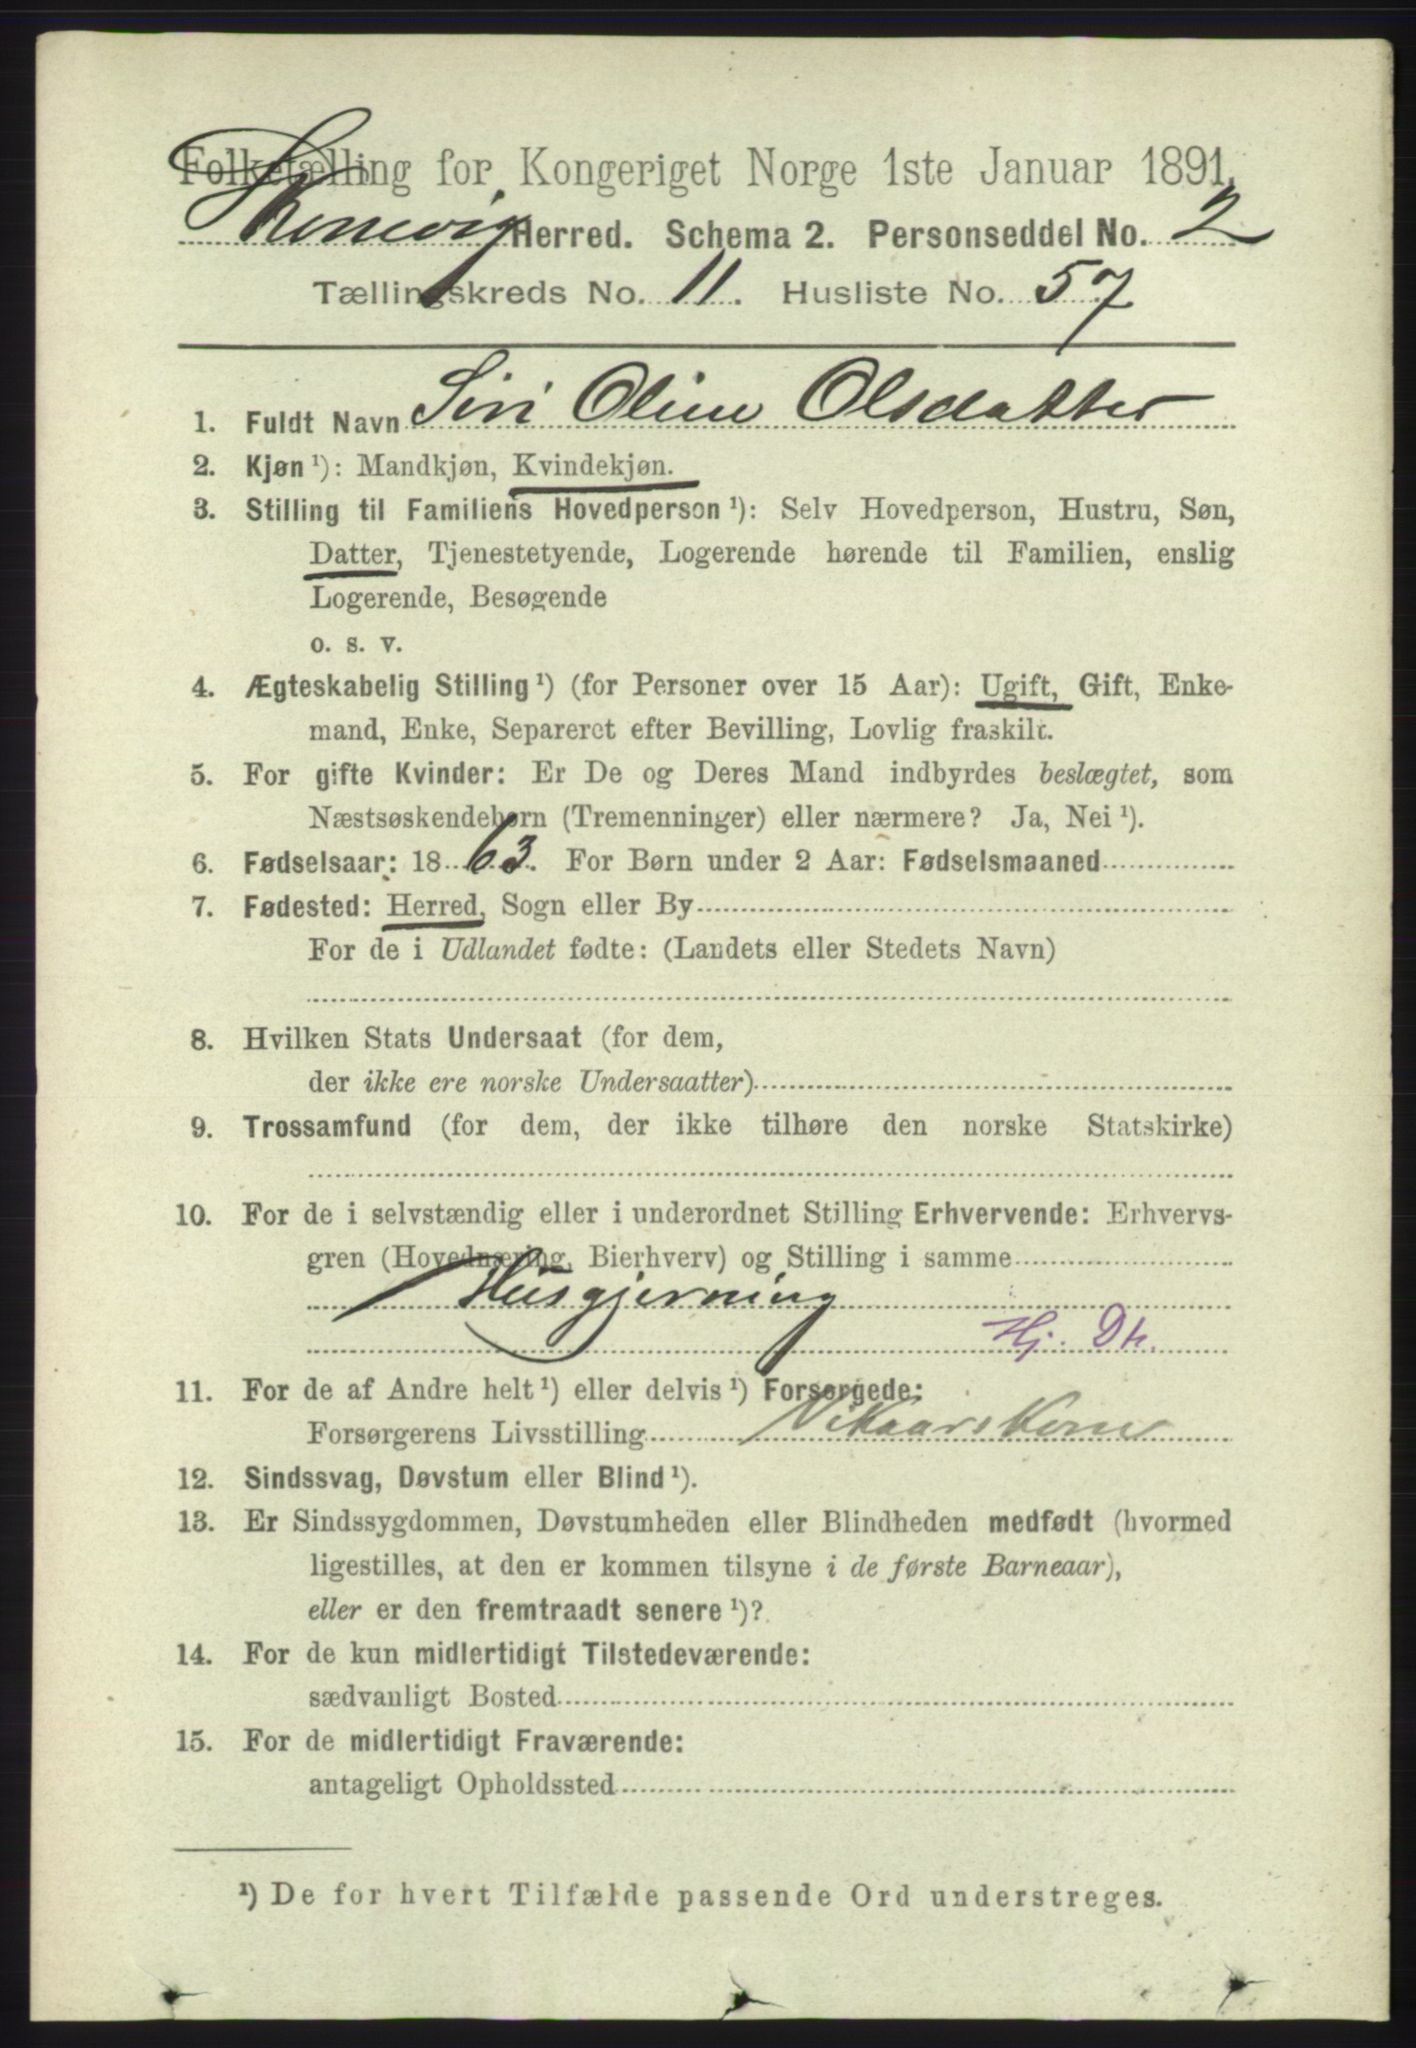 Folketælling for Kongeriget Norge 1ste Januar 1891.
Skonevig Herred. Schema 2. Personseddel No. 2
Tællingskreds No. 11. Husliste No. 57
1. Fuldt Navn Siri Oline Olsdatter
2. Kjøn ¹): Mandkjøn, Kvindekjøn.
3. Stilling til Familiens Hovedperson ¹): Selv Hovedperson, Hustru, Søn,
Datter, Tjenestetyende, Logerende hørende til Familien, enslig
Logerende, Besøgende
o. s. v.
4. Ægteskabelig Stilling ¹) (for Personer over 15 Aar): Ugift, Gift, Enke-
mand, Enke, Separeret efter Bevilling, Lovlig fraskilt.
5. For gifte Kvinder: Er De og Deres Mand indbyrdes beslægtet, som
Næstsøskendebørn (Tremenninger) eller nærmere? Ja, Nei ¹).
6. Fødselsaar: 1863. For Børn under 2 Aar: Fødselsmaaned
7. Fødested: Herred, Sogn eller By
For de i Udlandet fødte: (Landets eller Stedets Navn)
8. Hvilken Stats Undersaat (for dem,
der ikke ere norske Undersaatter)
9. Trossamfund (for dem, der ikke tilhøre den norske Statskirke)
10. For de i selvstændig eller i underordnet Stilling Erhvervende: Erhvervs-
gren (Hovednæring, Bierhverv) og Stilling i samme
Husgjerning
Hj. Dtr.
11. For de af Andre helt ¹) eller delvis ¹) Forsørgede:
Forsørgerens Livsstilling
12. Sindssvag, Døvstum eller Blind ¹).
13. Er Sindssygdommen, Døvstumheden eller Blindheden medfødt (hvormed
ligestilles, at den er kommen tilsyne i de første Barneaar),
eller er den fremtraadt senere ¹)?
14. For de kun midlertidigt Tilstedeværende:
sædvanligt Bosted
15. For de midlertidigt Fraværende:
antageligt Opholdssted
¹) De for hvert Tilfælde passende Ord understreges.